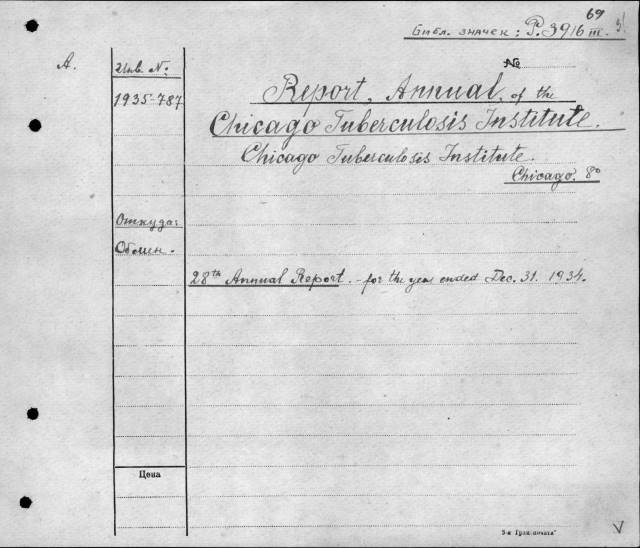 69
Библ. значек: P. 3916 III.
A.
Инв. №:
№
1935-787
Report, Annual, of the
Chicago Tuberculosis Institute.
Chicago Tuberculosis Institute.
Chicago. 8°
Откуда:
Обмен.
28th Annual Report. - for the year ended Dec. 31. 1934.
Цена
V